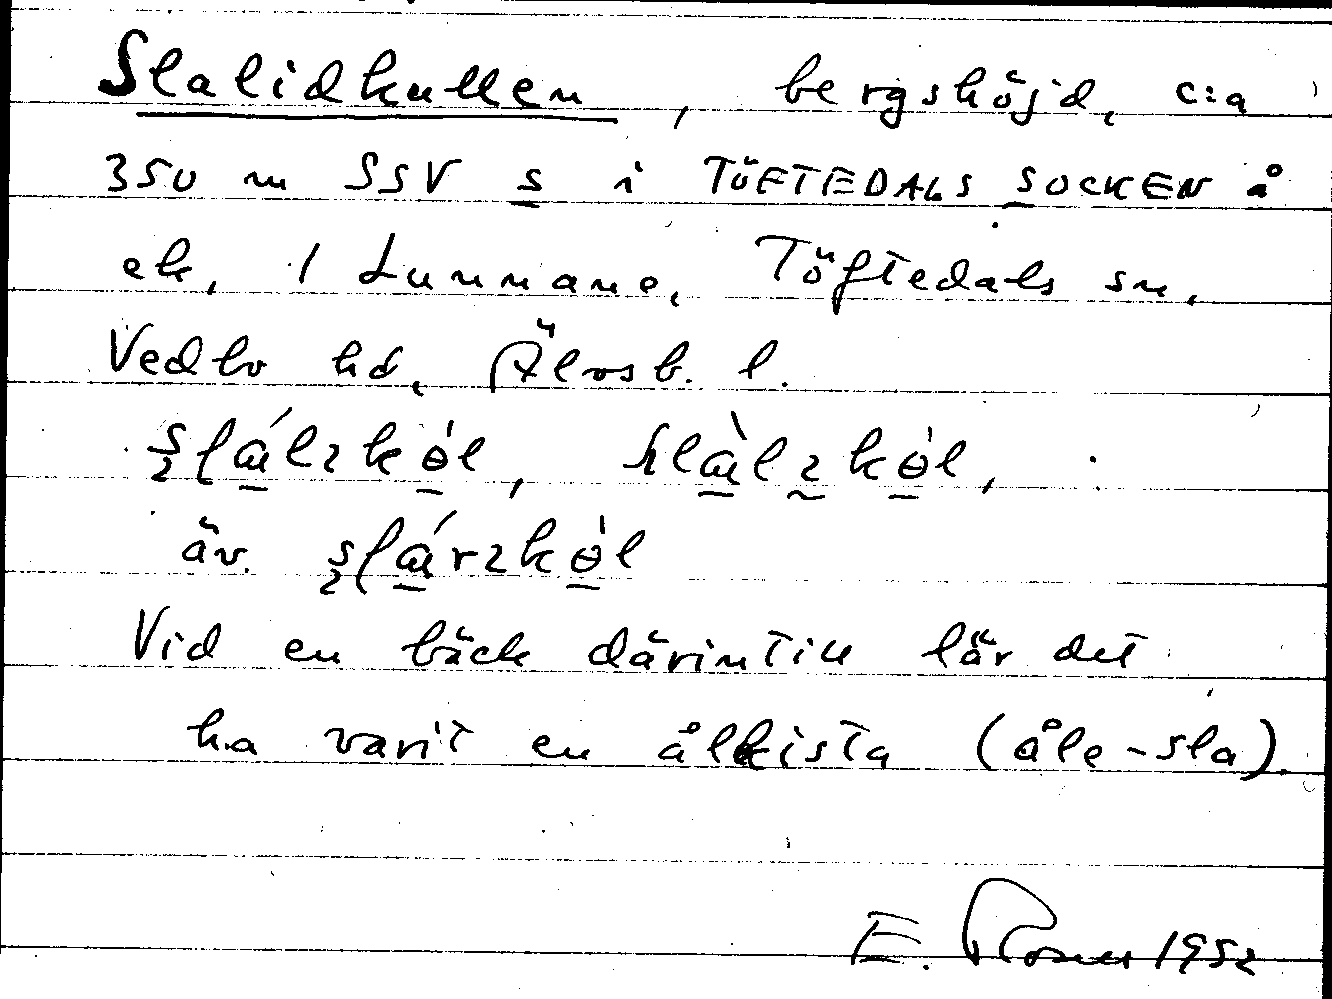 Slalidkullen, bergshöjd, c:a
350 m SSV s i TÖFTEDALS SOCKEN å
ek, 1 Lunnane, Töftedals sn,
Vedbo hd, Älvsb. l.
äv.
Vid en bäck därintill lär det
ha varit en ålkista (åle-sla).
E. 1952